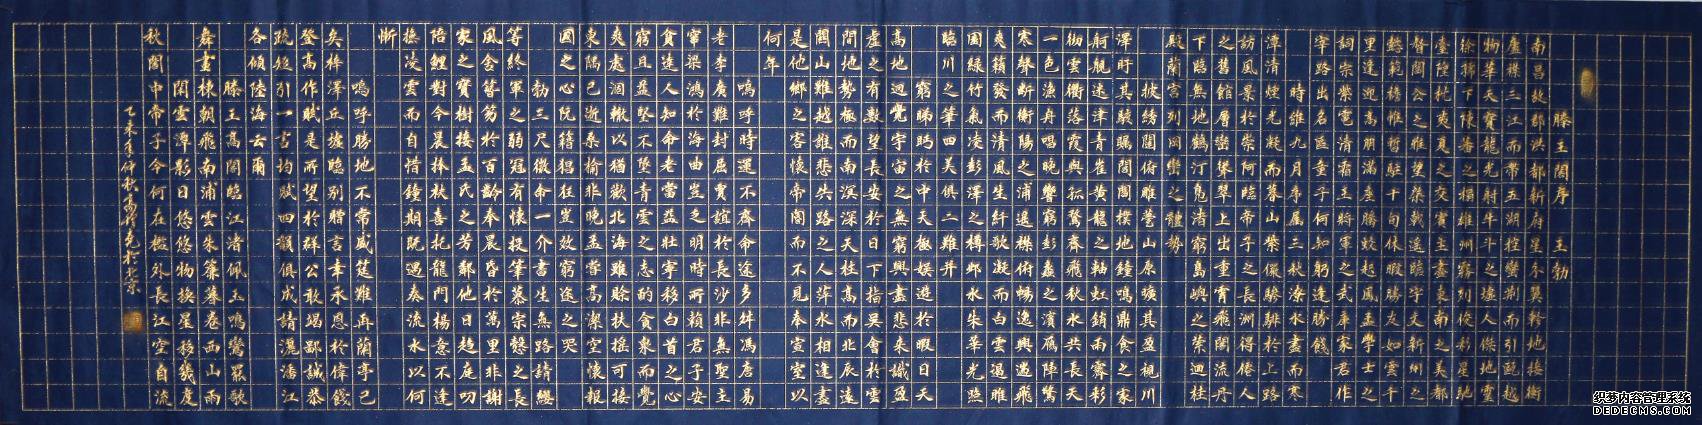 滕王閣序 王勃
南昌故郡洪都新府星分翼軫地接衡
廬襟三江而帶五湖控蠻荊而引甌越
物華天寶龍光射牛斗之墟人傑地靈
徐孺下陳蕃之榻雄州霧列俊彩星馳
臺隍枕夷夏之交賓主盡東南之美都
督閻公之雅望棨戟遙臨宇文新州之
懿範襜帷暫駐十旬休暇勝友如雲千
里逢迎高朋滿座騰蛟起鳳孟學士之
詞宗紫電清霜王將軍之武庫家君作
宰路出名區童子何知躬逢勝餞
時維九月序屬三秋潦水盡而寒
潭清煙光凝而暮山紫儼驂騑於上路
訪風景於崇阿臨帝子之長洲得僊人
之舊館層巒聳翠上出重霄飛閣流丹
下臨無地鶴汀鳧渚窮島嶼之縈迴桂
殿蘭宮列岡巒之體勢
披綉闥俯雕甍山原曠其盈視川
澤盱其駭矚閭閻撲地鐘鳴鼎食之家
舸艦迷津青雀黃龍之軸虹銷雨霽彩
徹雲衢落霞與孤鶩齊飛秋水共長天
一色漁舟唱晚響窮彭蠡之濱雁陣驚
寒聲斷衡陽之浦遙襟俯暢逸興遄飛
爽籟發而清風生纖歌凝而白雲遏睢
園綠竹氣凌彭澤之樽鄴水朱華光照
臨川之筆四美俱二難并
窮睇眄於中天極娛遊於暇日天
高地迥覺宇宙之無窮興盡悲來識盈
虛之有數望長安於日下指吳會於雲
間地勢極而南溟深天柱高而北辰遠
關山難越誰悲失路之人萍水相逢盡
是他鄉之客懷帝閽而不見奉宣室以
何年
嗚呼時運不齊命途多舛馮唐易
老李廣難封屈賈誼於長沙非無聖主
竄梁鴻於海曲豈乏明時所賴君子安
貧達人知命老當益壯寧移白首之心
窮且益堅不墜青雲之志酌貪泉而覺
爽處涸轍以猶歡北海雖賒扶搖可接
東隅已逝桑榆非晚孟嘗高潔空懷報
國之心阮籍猖狂豈效窮途之哭
勃三尺微命一介書生無路請纓
等終軍之弱冠有懷投筆慕宗愨之長
風舍簪笏於百齡奉晨昏於萬里非謝
家之寶樹接孟氏之芳鄰他日趨庭叨
陪鯉對今晨捧袂喜托龍門楊意不逢
撫凌雲而自惜鐘期既遇奏流水以何
慚
嗚呼勝地不常盛筵難再蘭亭已
矣梓澤丘墟臨別贈言幸承恩於偉餞
登高作賦是所望於群公敢竭鄙誠恭
疏短引一言均賦四韻俱成請灑潘江
各傾陸海云爾
滕王高閣臨江渚佩玉鳴鸞罷歌
舞畫棟朝飛南浦雲朱簾暮卷西山雨
閒雲潭影日悠悠物換星移幾度
秋閣中帝子今何在檻外長江空自流
乙未年仲秋高 於北京
织梦内容管理系统
DEDECMS.COM